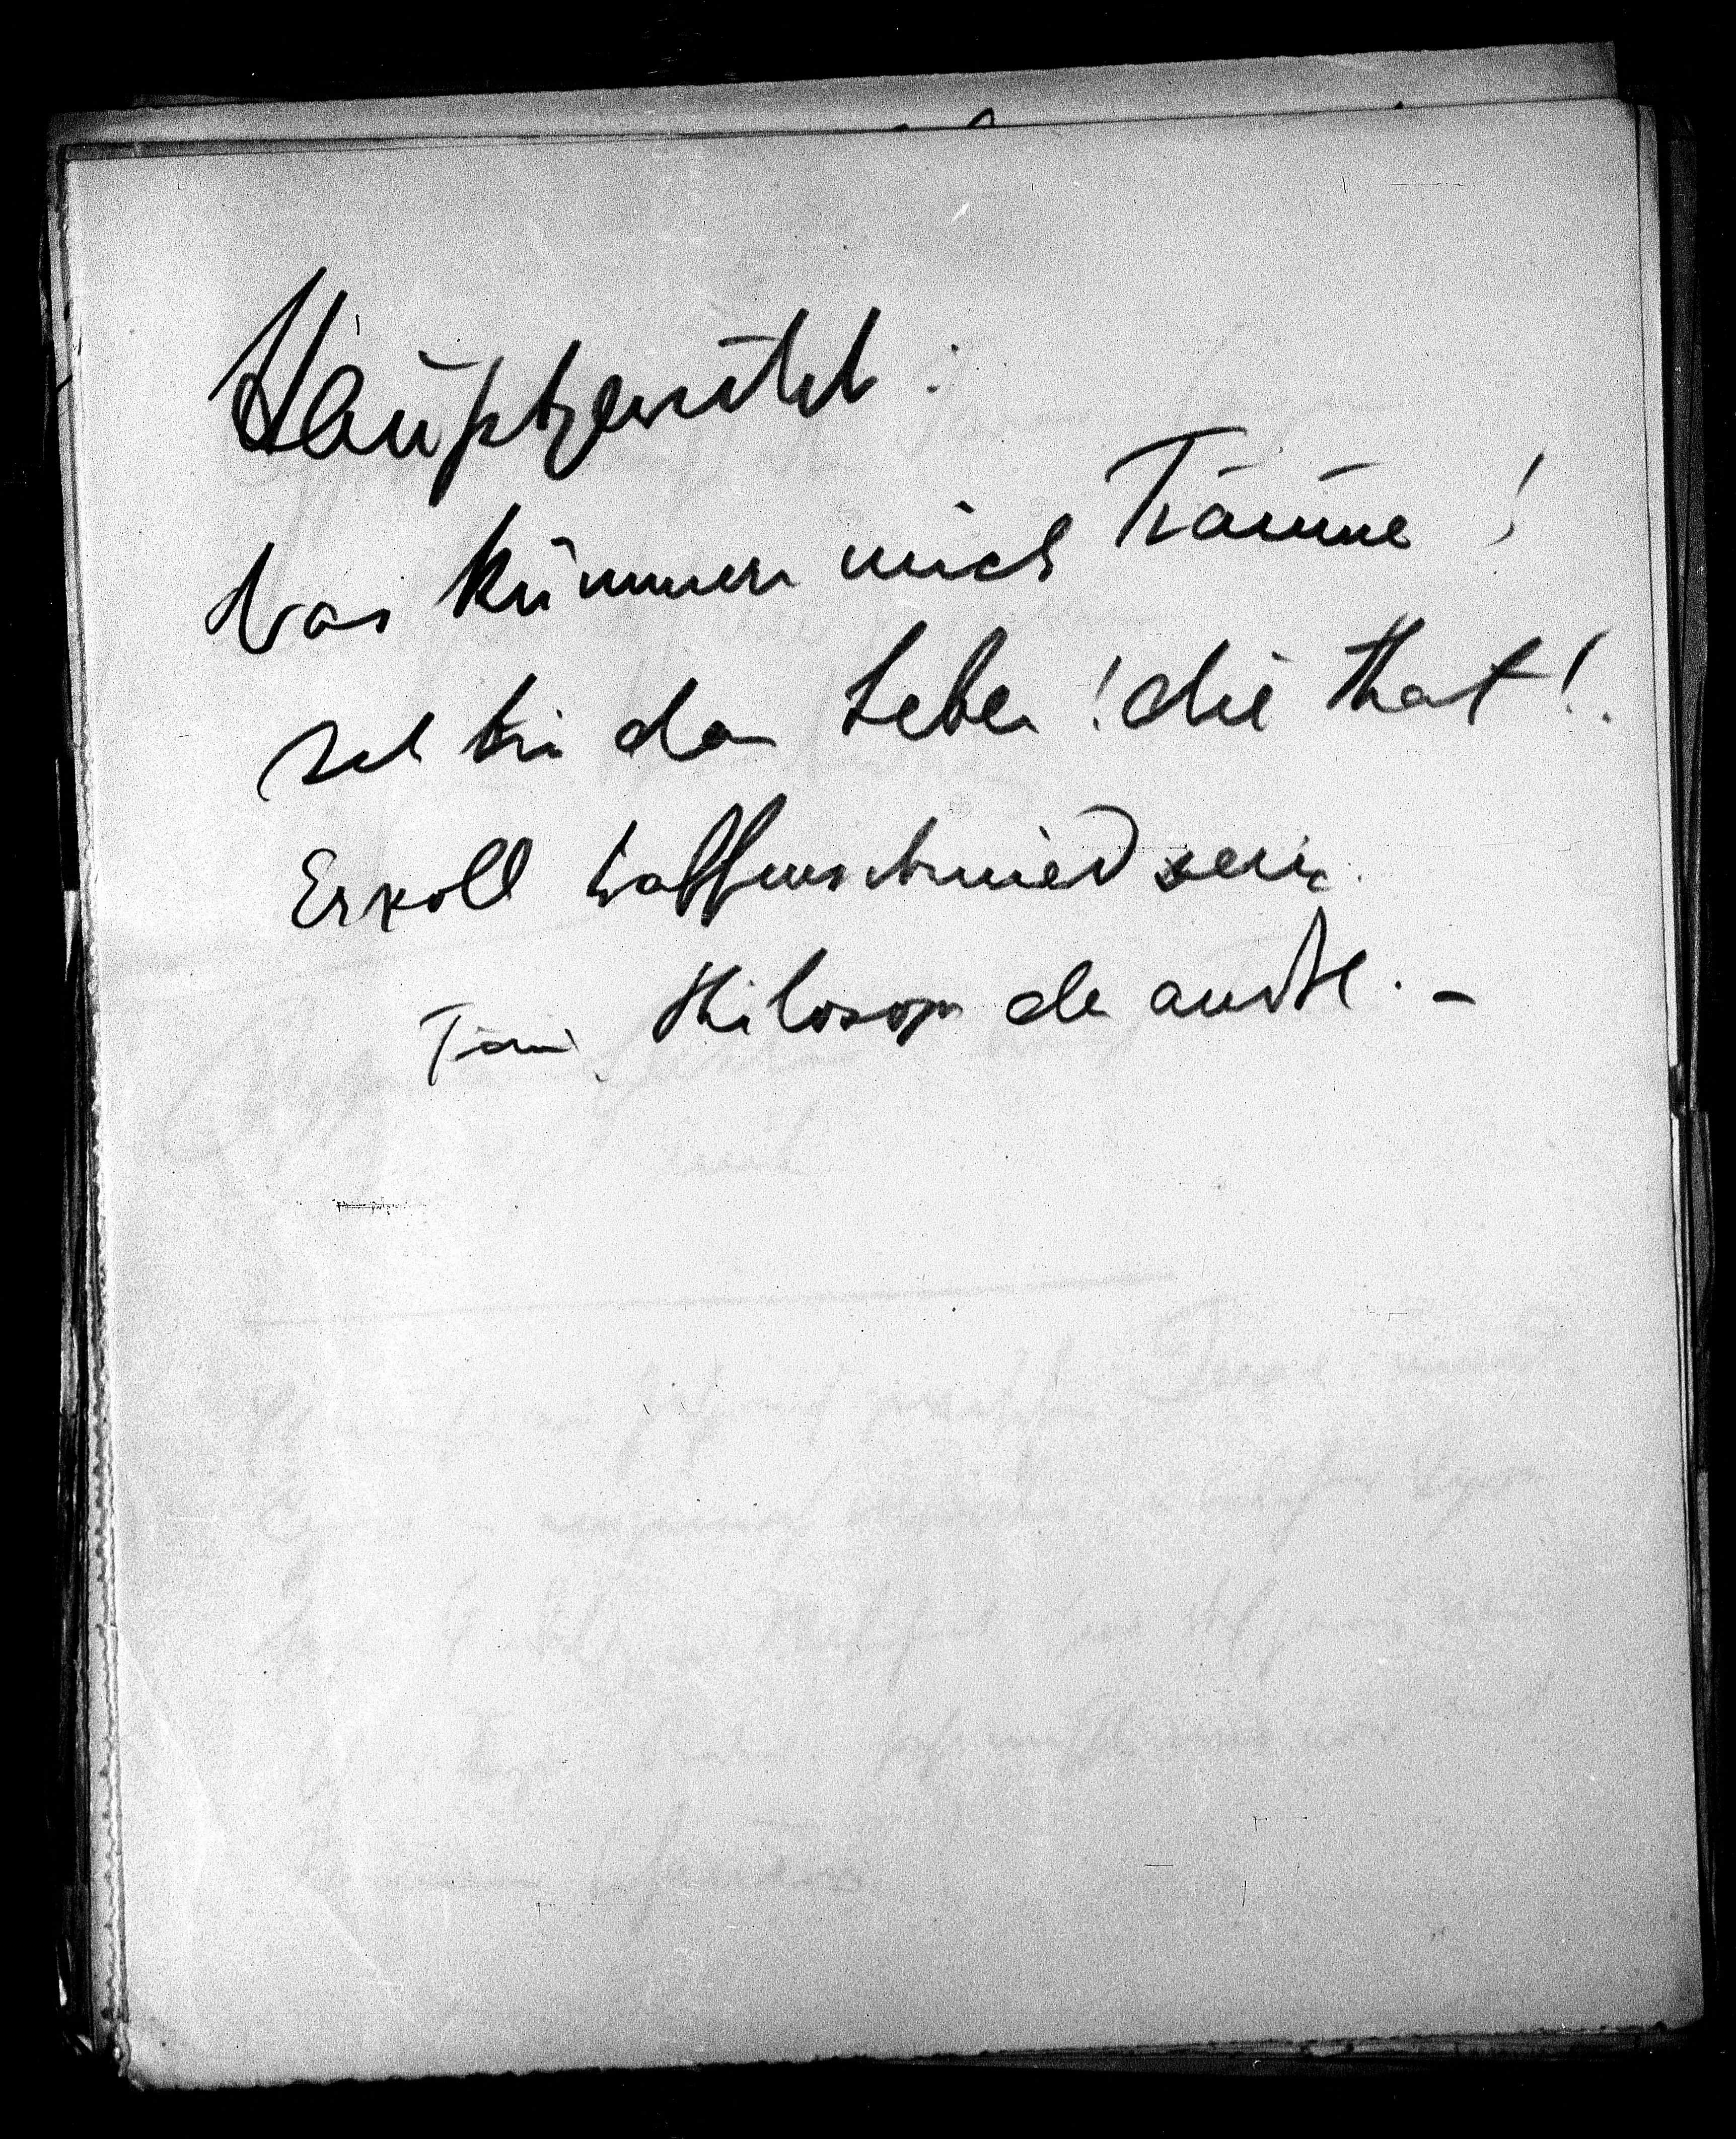 Hauptgewicht:
Was kümmern mich Träume!
Ich bin das Leben! die That!
Er soll Waffenschmied sein.
Philosop der andre. –